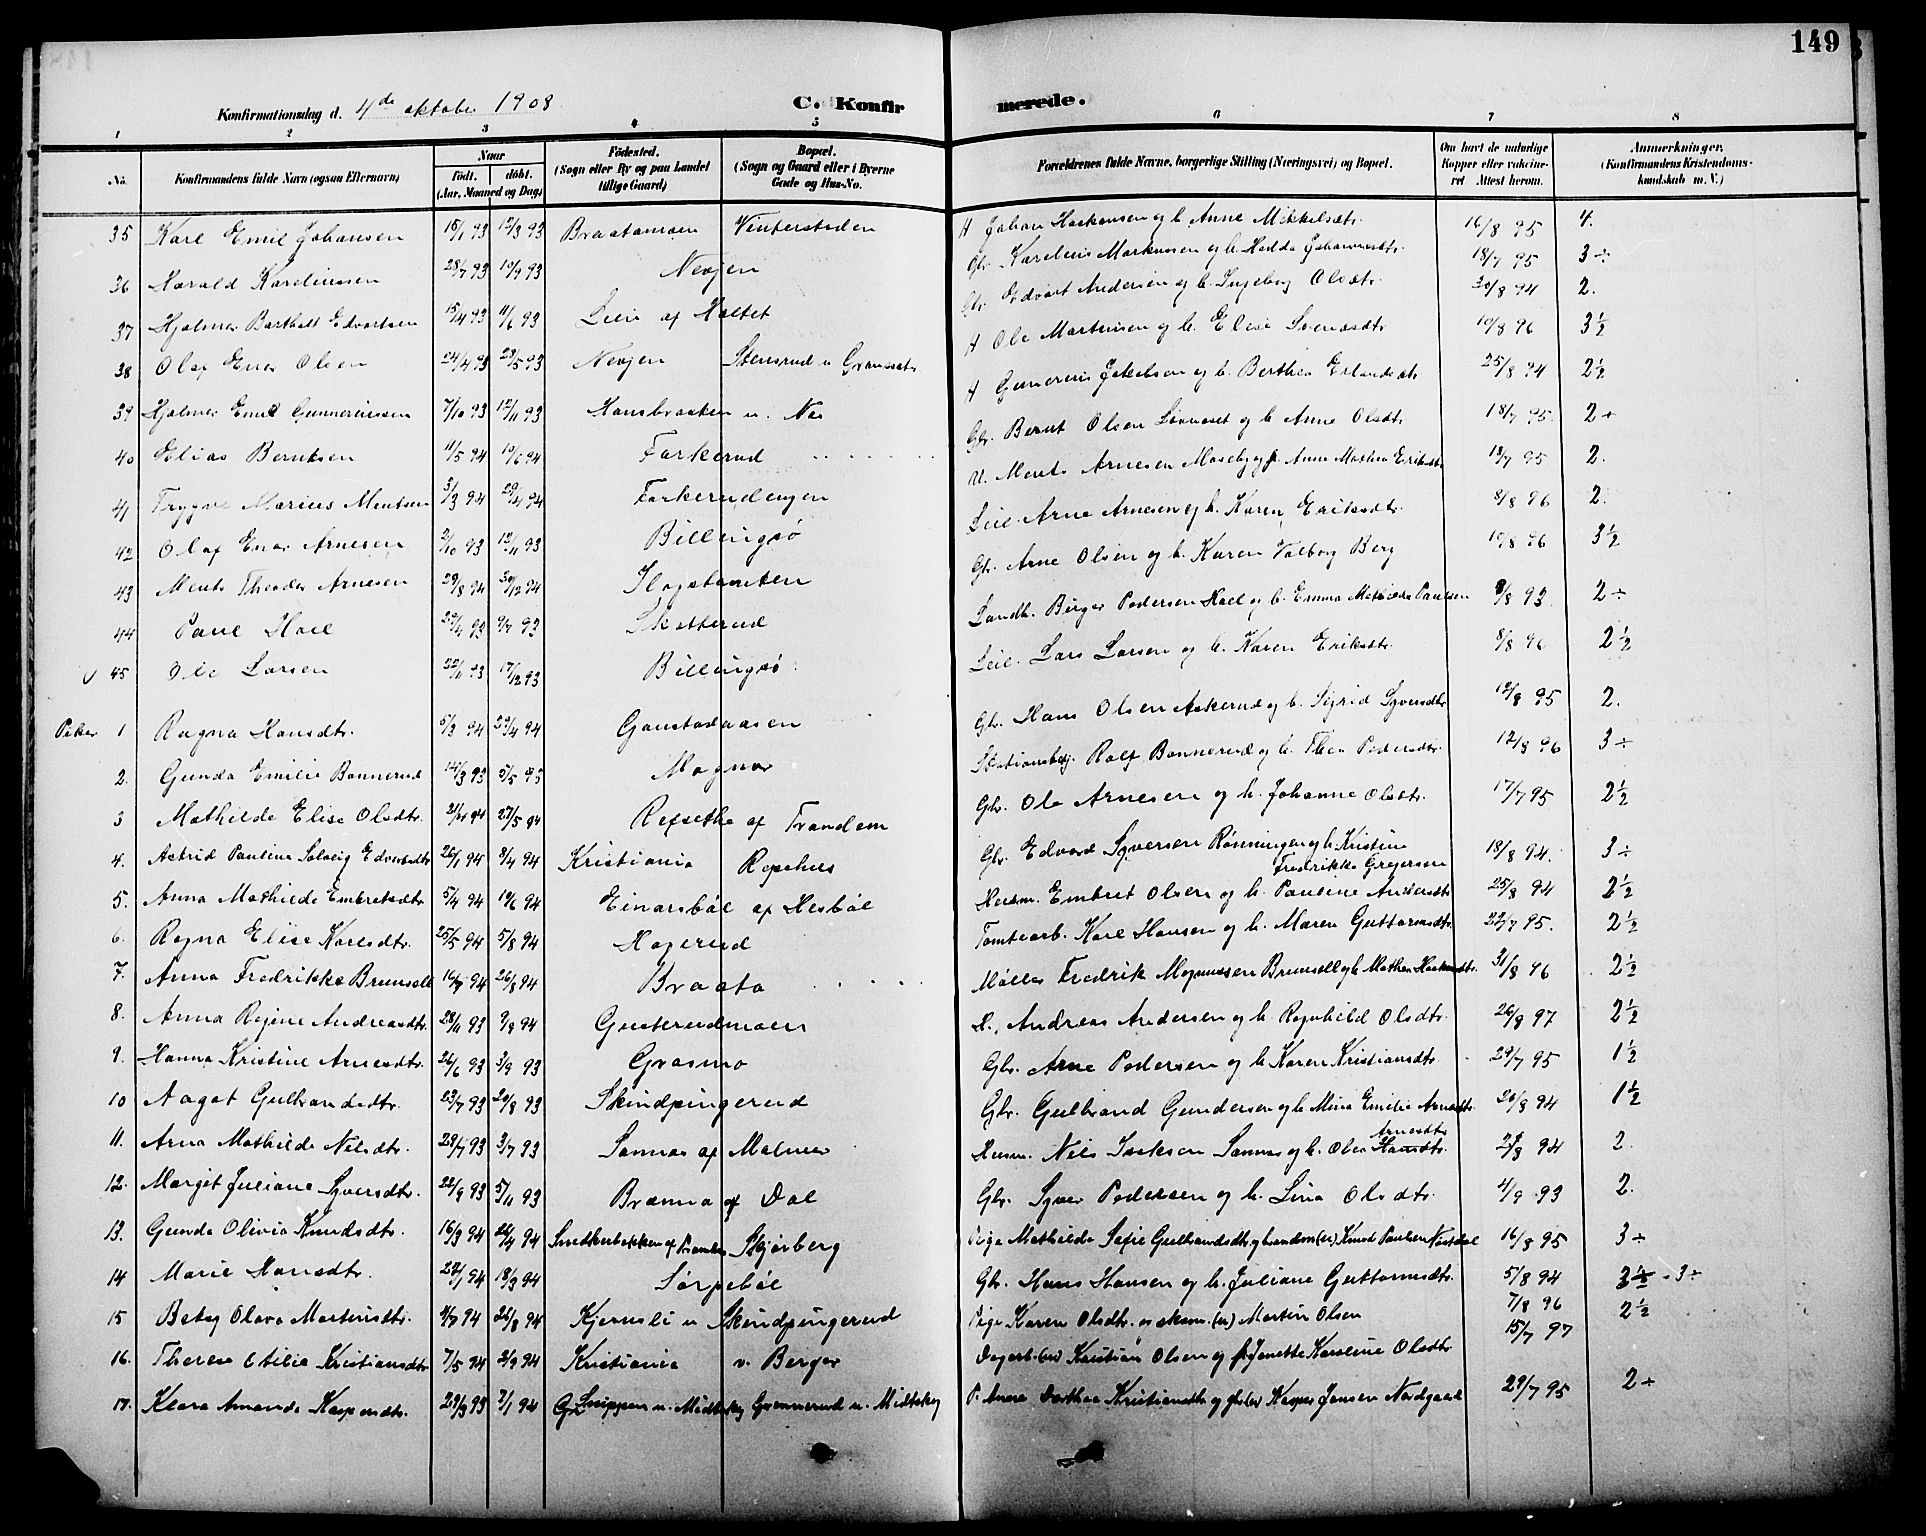 149
Konfirmationsdag d. 4de oktober 1908
C. Konfirmerede.
1 2 3 4 5 6 7 8
No. Konfirmandens fulde Navn (ogsaa Efternavn) Naar født. døbt. (Aar, Maaned og Dag) Fødested. (Sogn eller By og paa Landet tillige Gaard) Bopæl. (Sogn og Gaard eller i Byerne Gade og Hus-No. Forældrenes fulde Navne, borgerlige Stilling (Næringsvei) og Bopæl. Om havt de naturlige Kopper eller vakcineret Attest herom. Anmerkninger. (Konfirmandens Kristendomskundskab m. V.)
35 Karl Emil Johansen 15/1 93 12/3 93 Braatamoen Vintersteden A Johan Haakensen og h. Anne Mikkelsdtr. 16/8 95 4.
36 Harald Kareliussen 28/7 93 10/9 93 Nexjen Gbr. Karelius Markussen og h. Hedda Johannesdtr. 18/7 95 3 ÷
37 Hjalmar Barthold Edvartsen 15/4 93 11/6 93 Leie af Holtet Gbr. Edvart Andersen og h. Ingeborg Olsdtr. 30/8 94 2.
38 Olaf Enar Olsen 24/4 93 28/5 93 Nexjen Stensrud u Granaset A Ole Martinsen og h. Elise Svensdtr 10/8 96 3½
39 Hjalmar Emil Gunneriussen 7/10 93 12/11 93 Hansbraaten u. Nos A Gunerius Jakobsen og h. Berthea Erlandsdtr 25/8 94 2½
40 Elias Berntsen 11/5 94 10/6 94 Farkerud Gbr. Bernt Olsen og h Anne Olsdtr 18/7 95 2 ÷
41 Trygve Marius Mentsen 3/3 94 29/4 94 Farkerudengen U. Ments Arnesen Moseby og h Anne Mathea Eriksdtr 18/7 95 2.
42 Olaf Enar Arnesen 2/10 93 12/11 93 Billingsø Leil. Arne Arnesen og h. Karen Eriksdtr. 8/8 96 2.
43 Ments Theodor Arnesen 29/8 94 30/12 94 Flogstomten Gbr. Arne Olsen og h. Karen Valborg Berg 10/8 96 3½
44 Paul Hoel 9/7 93 Skotterud Landh. Birger Pedersen Hoel og h. Emma Mathilde Paulsen 8/8 93 2 ÷
45 Ole Larsen 22/11 93 17/12 93 Billingsø Leil. Lars Larsen og h. Karen Eriksdtr. 8/8 96 2½
Piker 1 Ragna Hansdtr. 5/3 94 29/4 94 Gaustadaasen Gbr. Hans Olsen Askerud og h. Sigrid Syversdtr 12/8 95 2.
2. Gunda Emilie Bonnerud 14/3 93 5/5 93 Magnor Stationsbetj. Rolf Bonnerud og h. Thea Pedersdtr. 12/8 96 3 ÷
3 Mathilde Elise Olsdtr. 21/4 94 27/5 94 Refsethe af Trandem Gbr. Ole Arnesen og h. Johanne Olsdtr. 17/7 95 2½
4. Astrid Pauline Solveig Edvardsdtr 26/1 94 8/4 94 Kristiania Repshus Gbr. Edvard Syversen Rønningen og h. Kristine Fredrikke Gregersen 18/8 94. 3 ÷
5. Anna Mathilde Embretsdtr 5/4 94 10/6 94 Einarsbøl af Hesbøl Husm. Embret Olsen og h. Pauline Andersdtr 25/8 94 2½
6. Ragna Elise Karlsdtr. 25/5 94 5/8 94 Hagerud Tomtearb. Karl Hansen og h. Maren Guttormsdtr. 22/7 95. 2½
7. Anna Fredrikke Brunsell 16/7 94 26/8 94 Braata Møller Fredrik Magnussen Brunsell og h Mathea Haakensdtr. 31/8 96 2½
8. Anna Regine Andreasdtr. 28/11 93 9/8 94 Gusterudmoen H. Andreas Andersen og h. Ragnhild Olsdtr. 26/8 97 2½
9. Hanna Kristine Arnesdtr. 26/6 93 3/9 93 Grasmo Gbr. Arne Pedersen og h. Karen Kristiansdtr. 29/7 95 1½
10 Aagot Gulbrandsdtr. 23/7 93 20/8 93 Skindpungerud Gbr. Gulbrand Gundersen og h. Mina Emilie Arnesdtr. 20/8 94 1½
11. Arna Mathilde Nilsdtr. 29/7 93 3/7 93 Sannas af Malmer Husm. Nils Isaksen Sannas og h. Olea Hansdtr. Arnesdtr 27/8 94 2.
12. Margit Juliane Syversdtr. 22/9 93 5/11 93 Brænna af Dal Gbr. Syver Pedersen og h. Lina Olsdtr. 4/9 93 2.
13. Gunda Olivia Knudsdtr. 16/3 94 22/4 94 Smedkerbakken af Skjørberg Pige Mathilde Sofie Gulbrandsdtr. og landm (u) Knud Paulsen Nordal 16/8 95 3 ÷
14 Marie Hansdtr. 22/1 94 18/3 94 Sørpebøl Gbr. Hans Hansen og h. Juliane Guttormsdtr. 5/8 94 3½ - 3 ÷
15 Betsy Olava Martinsdtr. 4/7 94 26/8 94 Kjernsli u Skindpungerud Pige Karen Olsdtr. og skom. (u) Martin Olsen 7/8 96 2½
16. Therese Otilie Kristiansdtr 7/5 94 2/9 94 Kristiania v. Berger Dagarb. (u) Kristian Olsen og h Janette Karoline Olsdtr 15/7 97
17. Klara Amanda Kaspersdtr. 29/3 93 7/1 94 Snippen u. Midtskog Grennerud u. Midtskog P. Anne Dorthea Kristiansdtr og Kasper Jansen Nordgaard 29/7 95 2 ÷